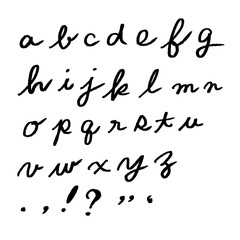 a b c d e f g
h i j k l m n
o p q r s t u
v w x y z
. , ! ? " '